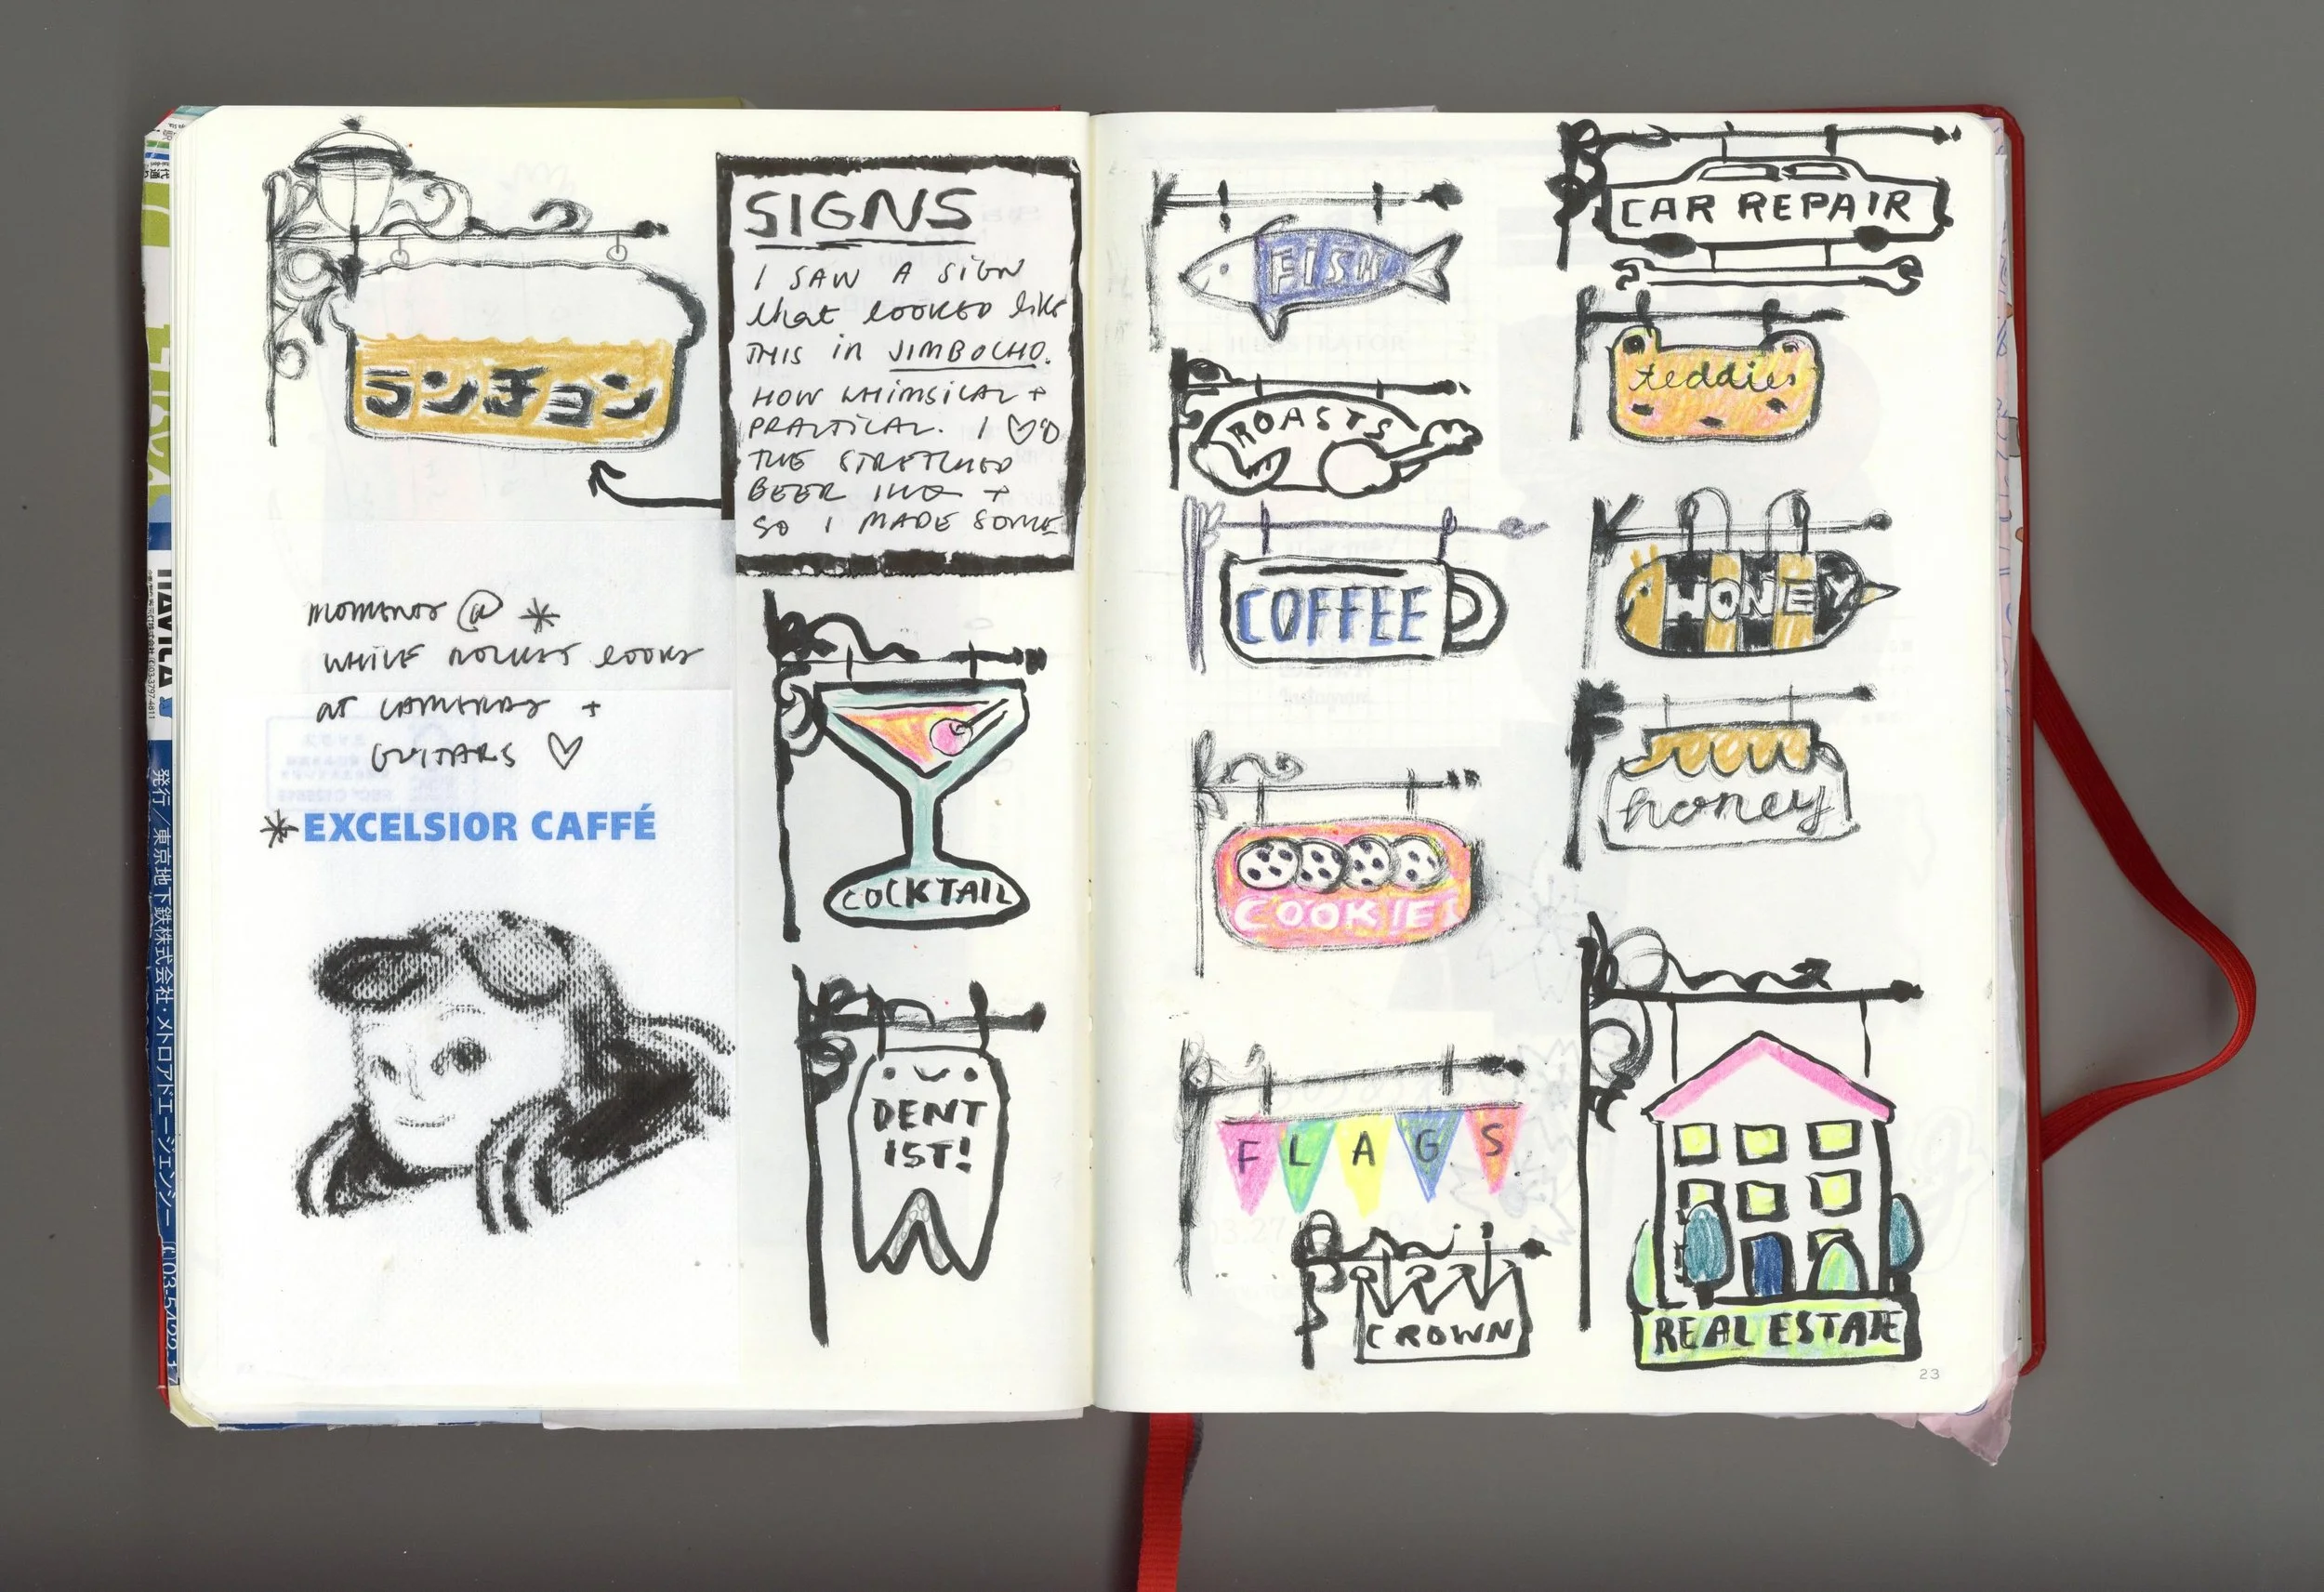 ランチョン
SIGNS
I SAW A SIGN
that LOOKED like
THIS in JIMBOCHO.
HOW WHIMSICAL +
PRACTICAL. I ♡'D
THE STRETCHED
BEER +
SO I MADE SOME
MOMENTS @ *
WHILE LOOKS
AT CAMERAS +
GUITARS ♡
*EXCELSIOR CAFFÉ
COCKTAIL
DENT
IST!
発行/東京地下鉄株式会社・メトロアドエージェンシー
FISH
ROASTS
COFFEE
COOKIES
FLAGS
CROWN
CAR REPAIR
teddies
HONEY
honey
REAL ESTATE
23